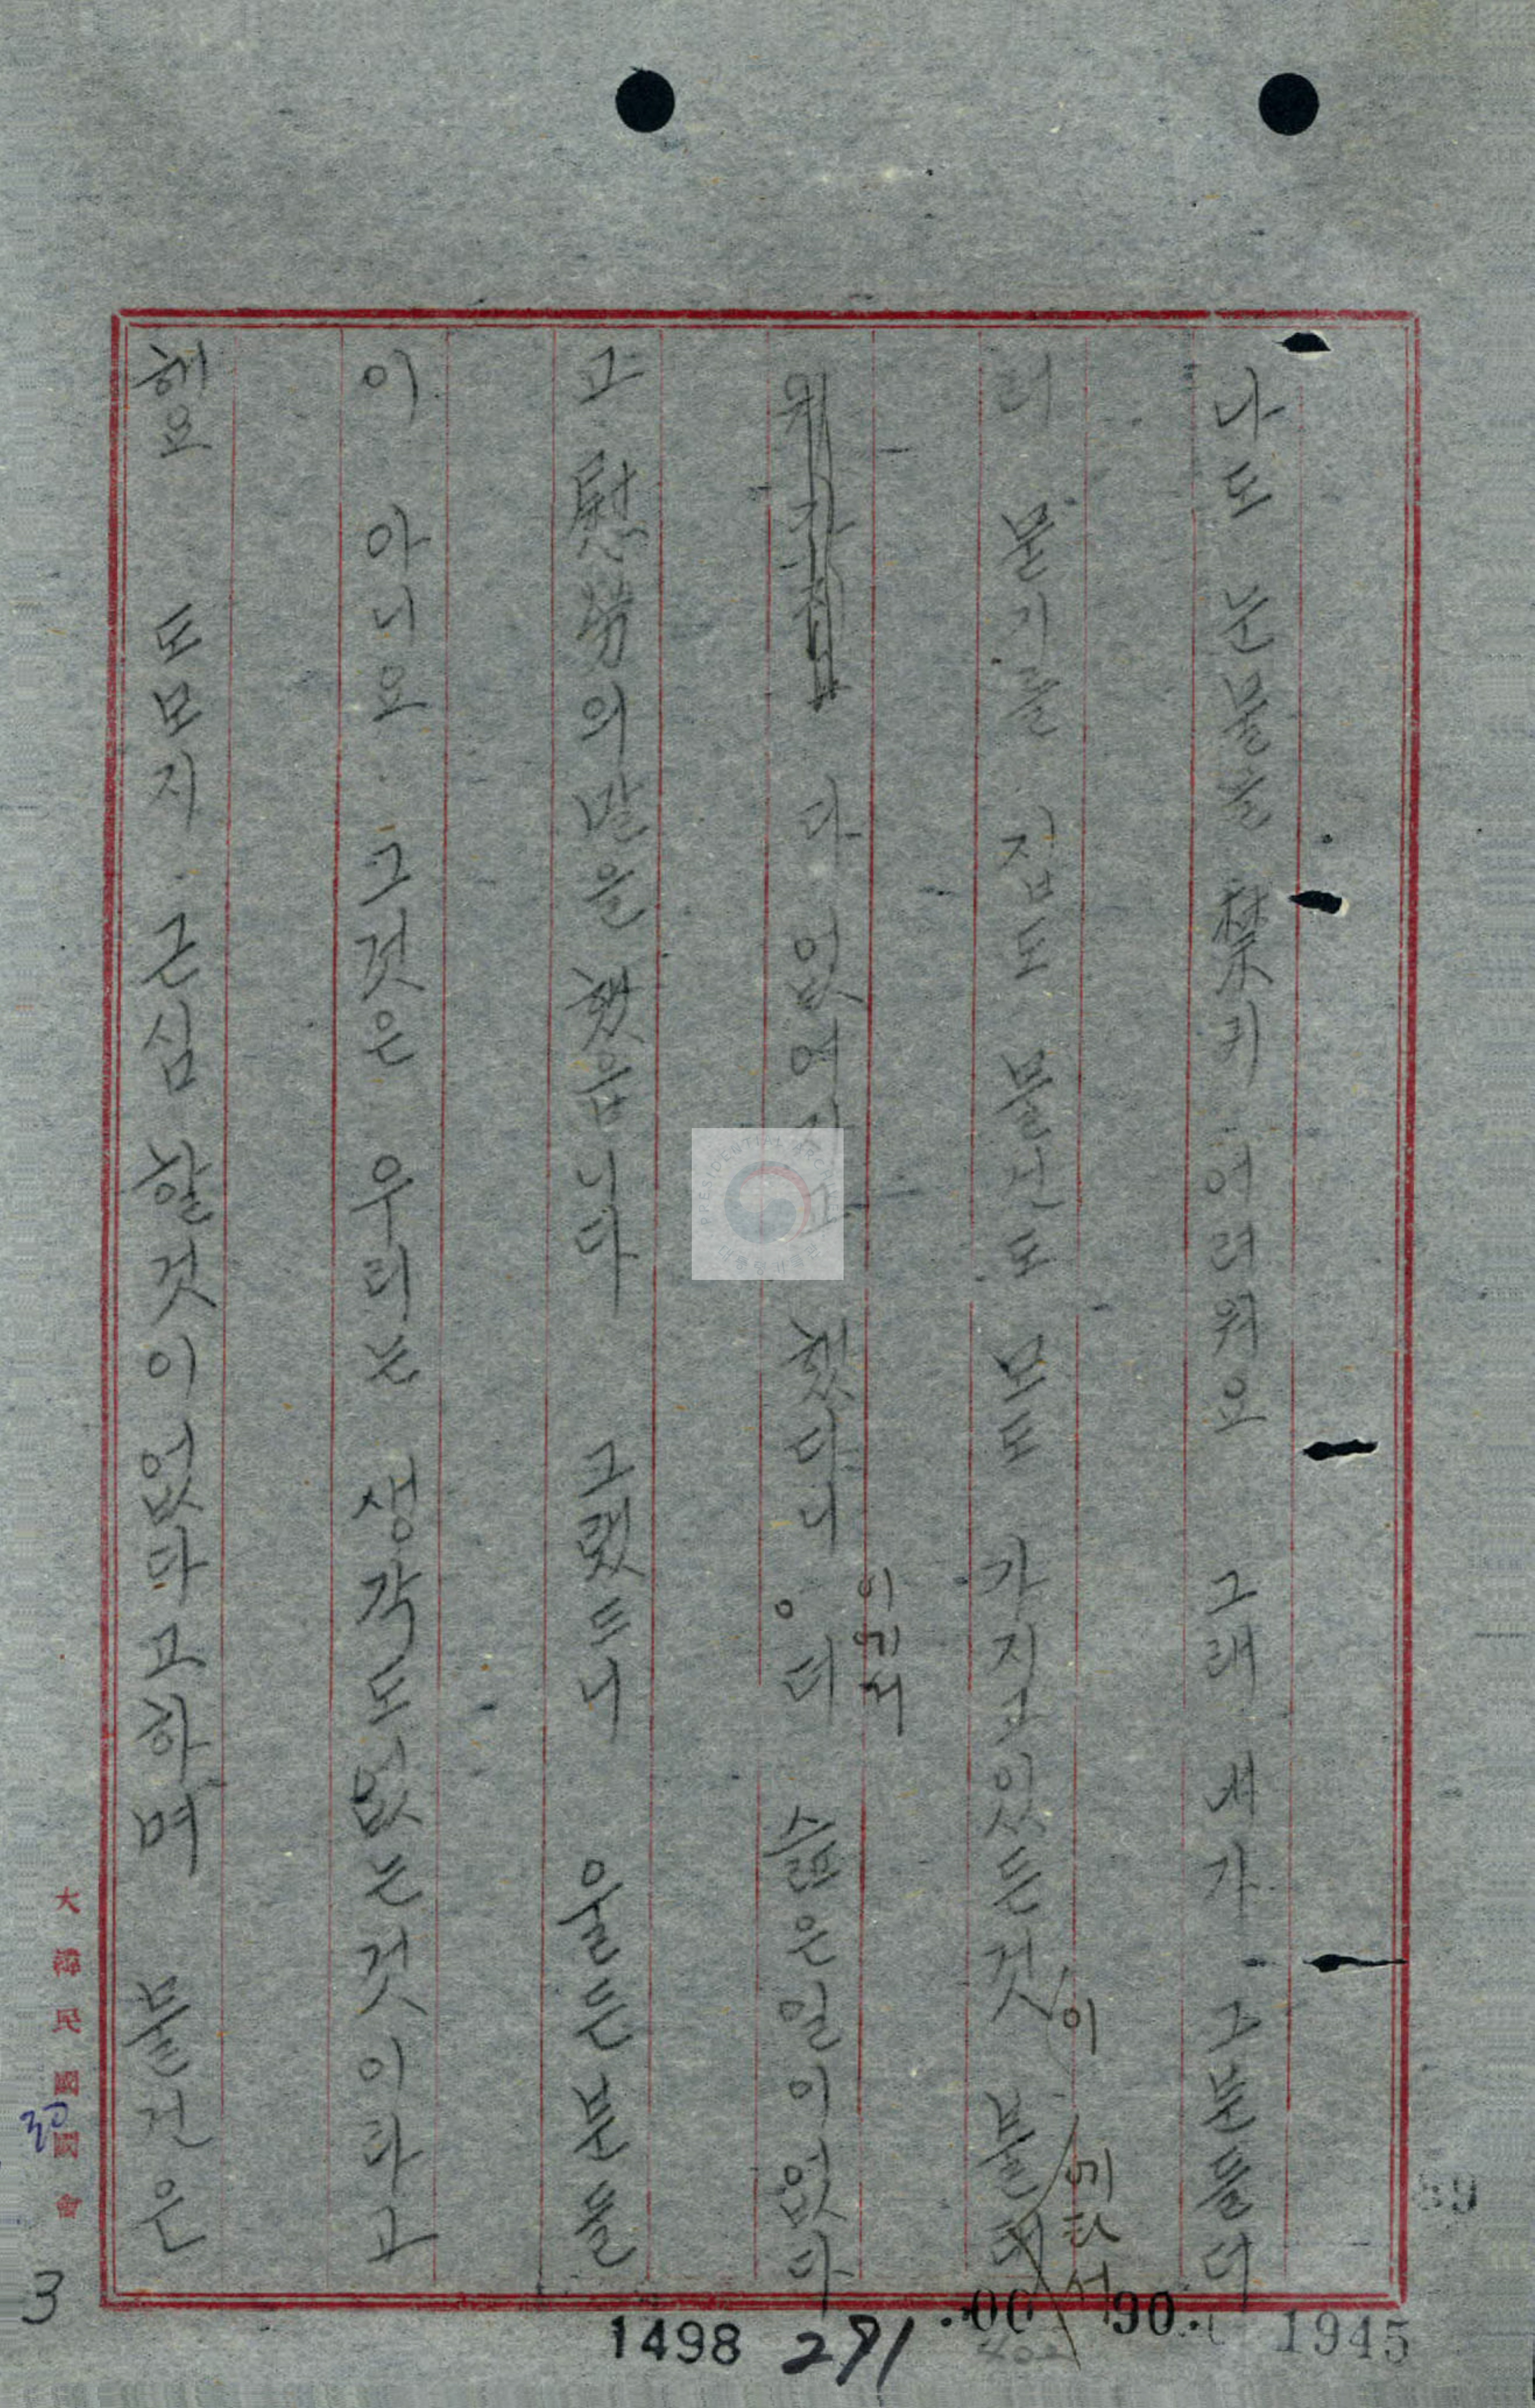 나도 눈물을 禁키 어려워요 그래 제가 그분들더
러 물건을 집도 물건도 모도 가지고 있든것이 불에타서
다 없어지고 했다니 이웬
이게 웬 쉬운일이없다
고 慰勞의말을 했읍니다 그랬드니 울든분들
이 아니요 그것은 우리는 생각도없는것이라고
해요 도모지 근심 할것이없다고하며 물건은
大韓民國國會
공
3
1498 291
1945